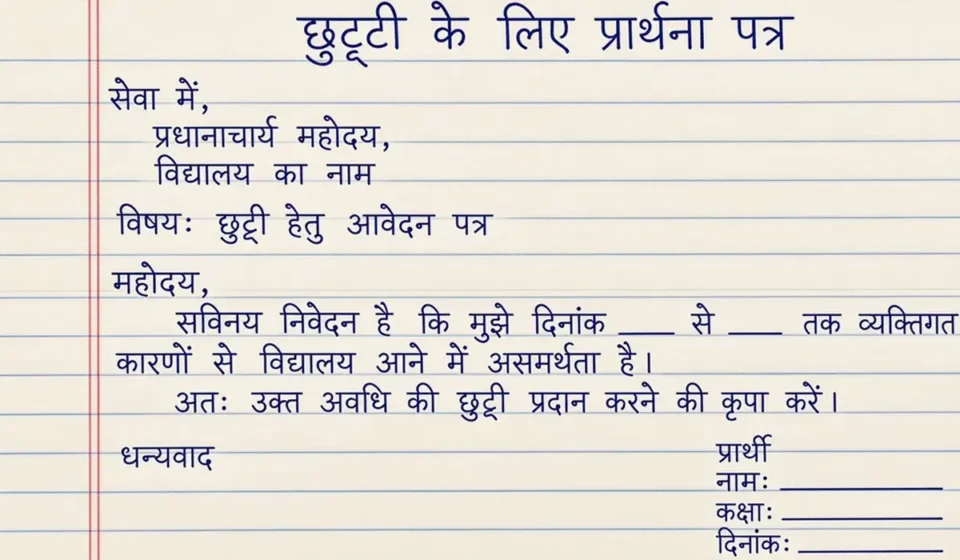 छुट्टी के लिए प्रार्थना पत्र
सेवा में,
प्रधानाचार्य महोदय,
विद्यालय का नाम
विषय: छुट्टी हेतु आवेदन पत्र
महोदय,
सविनय निवेदन है कि मुझे दिनांक ____ से ____ तक व्यक्तिगत
कारणों से विद्यालय आने में असमर्थता है।
अतः उक्त अवधि की छुट्टी प्रदान करने की कृपा करें।
धन्यवाद
प्रार्थी
नाम: ____________
कक्षा: ____________
दिनांक: ____________